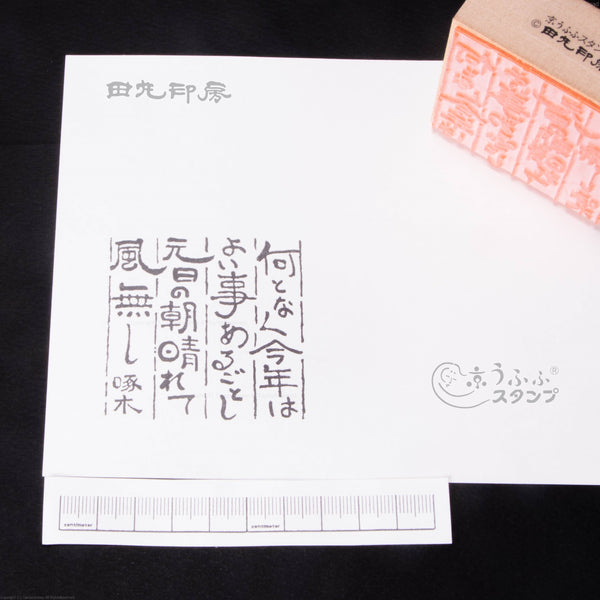 田丸印房
何となく今年は
よい事あるごとし
元日の朝晴れて
風無し 啄木
京うふふ®
スタンプ
centimeter
centimeter
京うふふスタンプ
©田丸印房